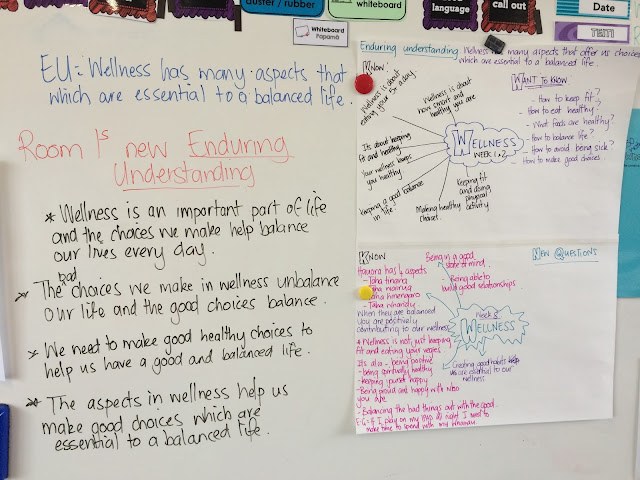 duster / rubber
Whiteboard
Papamā
whiteboard
language
call out
Date
EU: Wellness has many aspects that
which are essential to a balanced life.
Room 1s new Enduring
Understanding
* Wellness is an important part of life
and the choices we make help balance
our lives every day.
bad
* The choices we make in wellness unbalance
our life and the good choices balance.
* We need to make good healthy choices to
help us have a good and balanced life.
* The aspects in wellness help us
make good choices which are
essential to a balanced life.
Enduring understanding: Wellness has many aspects that offer us choices
which are essential to a balanced life.
Know:
Wellness is about
eating your 5+ a day.
Wellness is about
how smart and
healthy you are
Its about keeping
fit and healthy
Your wellness keeps
you healthy
Keeping a good balance
in life.
Making healthy
choices.
Keeping fit
and doing
physical
activity
WELLNESS
WEEK 1+2
WANT TO KNOW
- How to keep fit?
- How to eat healthy?
- What foods are healthy?
- How to balance life?
- How to avoid being sick?
- How to make good choices.
Know
Hauora has 4 aspects
- Taha tinana
- Taha wairua
- Taha hinengaro
- Taha whanau
When they are balanced
you are positively
contributing to our wellness
* Wellness is not just keeping
fit and eating your vegies
Its also - being positive
- being spiritually healthy
- keeping yourself happy
- Being proud and happy with who
you are
- Balancing the bad things out with the good.
E.G = if I play on my iPad all night I need to
make time to spend with my whanau
Being in a good
state of mind.
Being able to
build good relationships
Week 8
WELLNESS
Creating good habits help
us are essential to our
wellness
NEW QUESTIONS